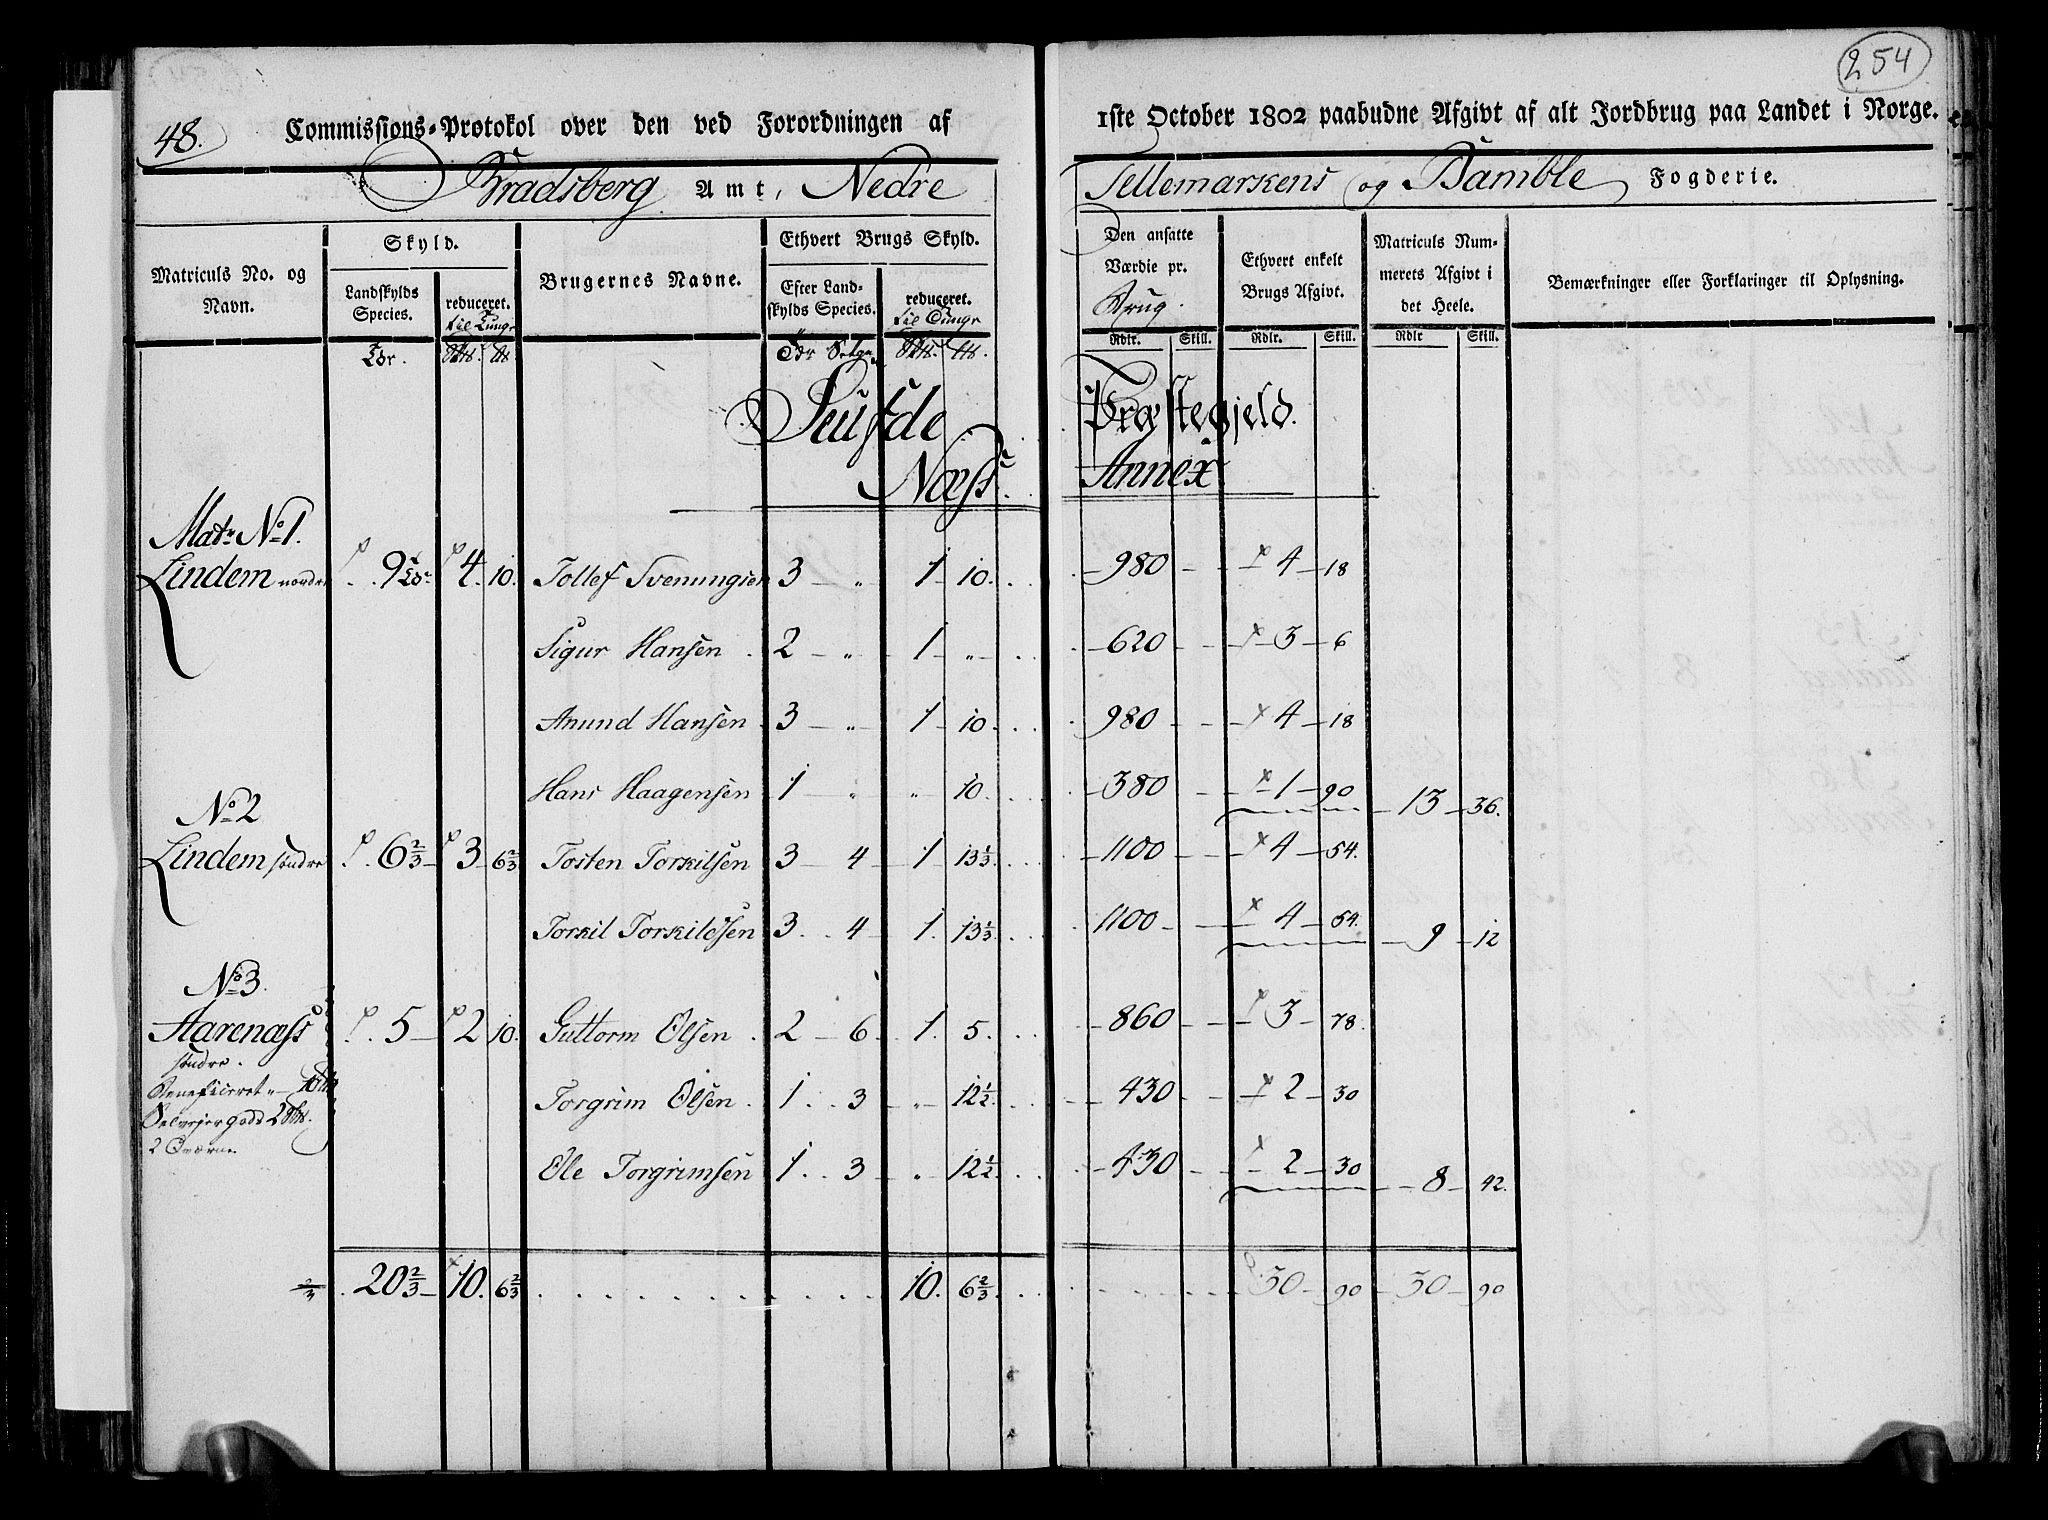 254
48.
Commissions-Protokol over den ved Forordningen af 1ste October 1802 paabudne Afgivt af alt Jordbrug paa Landet i Norge.
Bradsberg Amt, Nedre Tellemarkens og Bamble Fogderie.
Matriculs No. og Navn.
Skyld.
Landskylds Species.
reduceret.
til Tunge
Brugernes Navne.
Ethvert Brugs Skyld.
Efter Landskylds Species.
reduceret.
til Tunge
Den ansatte Værdie pr.
Brug.
Ethvert enkelt Brugs Afgivt.
Matriculs Nummerets Afgivt i det Heele.
Bemærkninger eller Forklaringer til Oplysning.
Rdlr. Skill. Rdlr. Skill. Rdlr Skill.
Seufde Præstegjeld.
Næss Annex
Matr. No 1.
Lindem nordre 9 4 10. Tollef Svenungsen 3 „ 1 10. 980 4 18
Sigur Hansen 2 „ 1 „ 620 3 6
Anund Hansen 3 „ 1 10 980 4 18
Hans Haagensen 1 „ „ 10. 380 1 90 13 36.
No 2
Lindem søndre 6 2/3 3 6 2/3 Tosten Torkilsen 3 4 1 13 1/3 1100 4 54.
Torkil Torkildsen 3 4 1. 13 1/3 1100 4 54. 9 12
No 3.
Aarenæss 5 2 10. Guttorm Olsen 2 6 1. 5. 860 3 78.
søndre.
Beneficeret „ 10
Selvejergods 2
Torgrim Olsen 1 3 „ 12 1/2 430 2 30
2 Qværne
Ole Torgrimsen 1 3 „ 12 1/2 430 2 30 8 42.
20 2/3 10. 6 2/3 10. 6 2/3 30 90 30 90